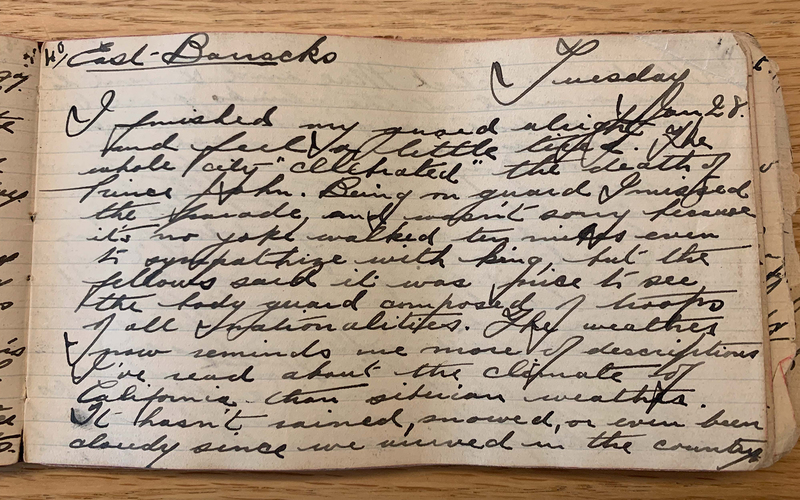 East-Barracks
Tuesday
Jan 28.
I finished my guard alright
and feel a little tired. The
whole city "cellebrated" the death of
Prince John. Being on guard I missed
the parade, and wasn't sorry because
it's no yoke walked ten miles even
to sympathize with king, but the
fellows said it was nice to see
the body guard composed of troops
of all nationalities. The weather
now reminds me more of descriptions
I've read about the climate of
California than siberian weather.
It hasn't rained, snowed, or even been
cloudy since we arrived in the country